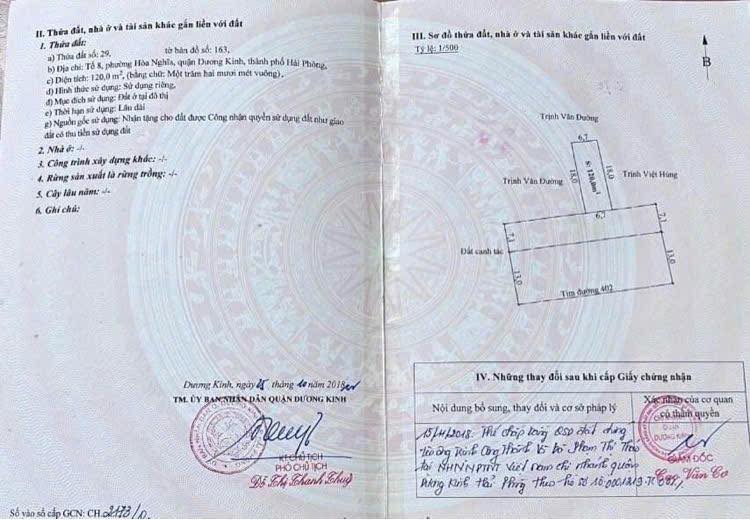 II. Thửa đất, nhà ở và tài sản khác gắn liền với đất
1. Thửa đất:
a) Thửa đất số: 29, tờ bản đồ số: 163,
b) Địa chỉ: Tổ 8, phường Hòa Nghĩa, quận Dương Kinh, thành phố Hải Phòng,
c) Diện tích: 120,0 m², (bằng chữ: Một trăm hai mươi mét vuông),
d) Hình thức sử dụng: Sử dụng riêng,
đ) Mục đích sử dụng: Đất ở tại đô thị
e) Thời hạn sử dụng: Lâu dài
g) Nguồn gốc sử dụng: Nhận tặng cho đất được Công nhận quyền sử dụng đất như giao
đất có thu tiền sử dụng đất
2. Nhà ở: -/-
3. Công trình xây dựng khác: -/-
4. Rừng sản xuất là rừng trồng: -/-
5. Cây lâu năm: -/-
6. Ghi chú:
Dương Kinh, ngày 25 tháng 10 năm 2018
TM. ỦY BAN NHÂN DÂN QUẬN DƯƠNG KINH
KT. CHỦ TỊCH
PHÓ CHỦ TỊCH
Đỗ Thị Thanh Thuý
Số vào sổ cấp GCN: CH.
III. Sơ đồ thửa đất, nhà ở và tài sản khác gắn liền với đất
Tỷ lệ: 1/500
B
Trịnh Văn Dương
6,7
18,0
S: 120,0m²
18,0
Trịnh Văn Dương
Trịnh Việt Hùng
6,7
7,1
7,1
Đất canh tác
13,0
13,0
Tim đường 402
IV. Những thay đổi sau khi cấp Giấy chứng nhận
Nội dung bổ sung, thay đổi và cơ sở pháp lý
Xác nhận của cơ quan
có thẩm quyền
Thế chấp bằng QSD đất
Phạm Thị
tại NHNN PTNT Việt nam chi nhánh quận
Dương Kinh Hải Phòng theo hồ sơ số
QUẬN
DƯƠNG KINH
GIÁM ĐỐC
Văn Cơ